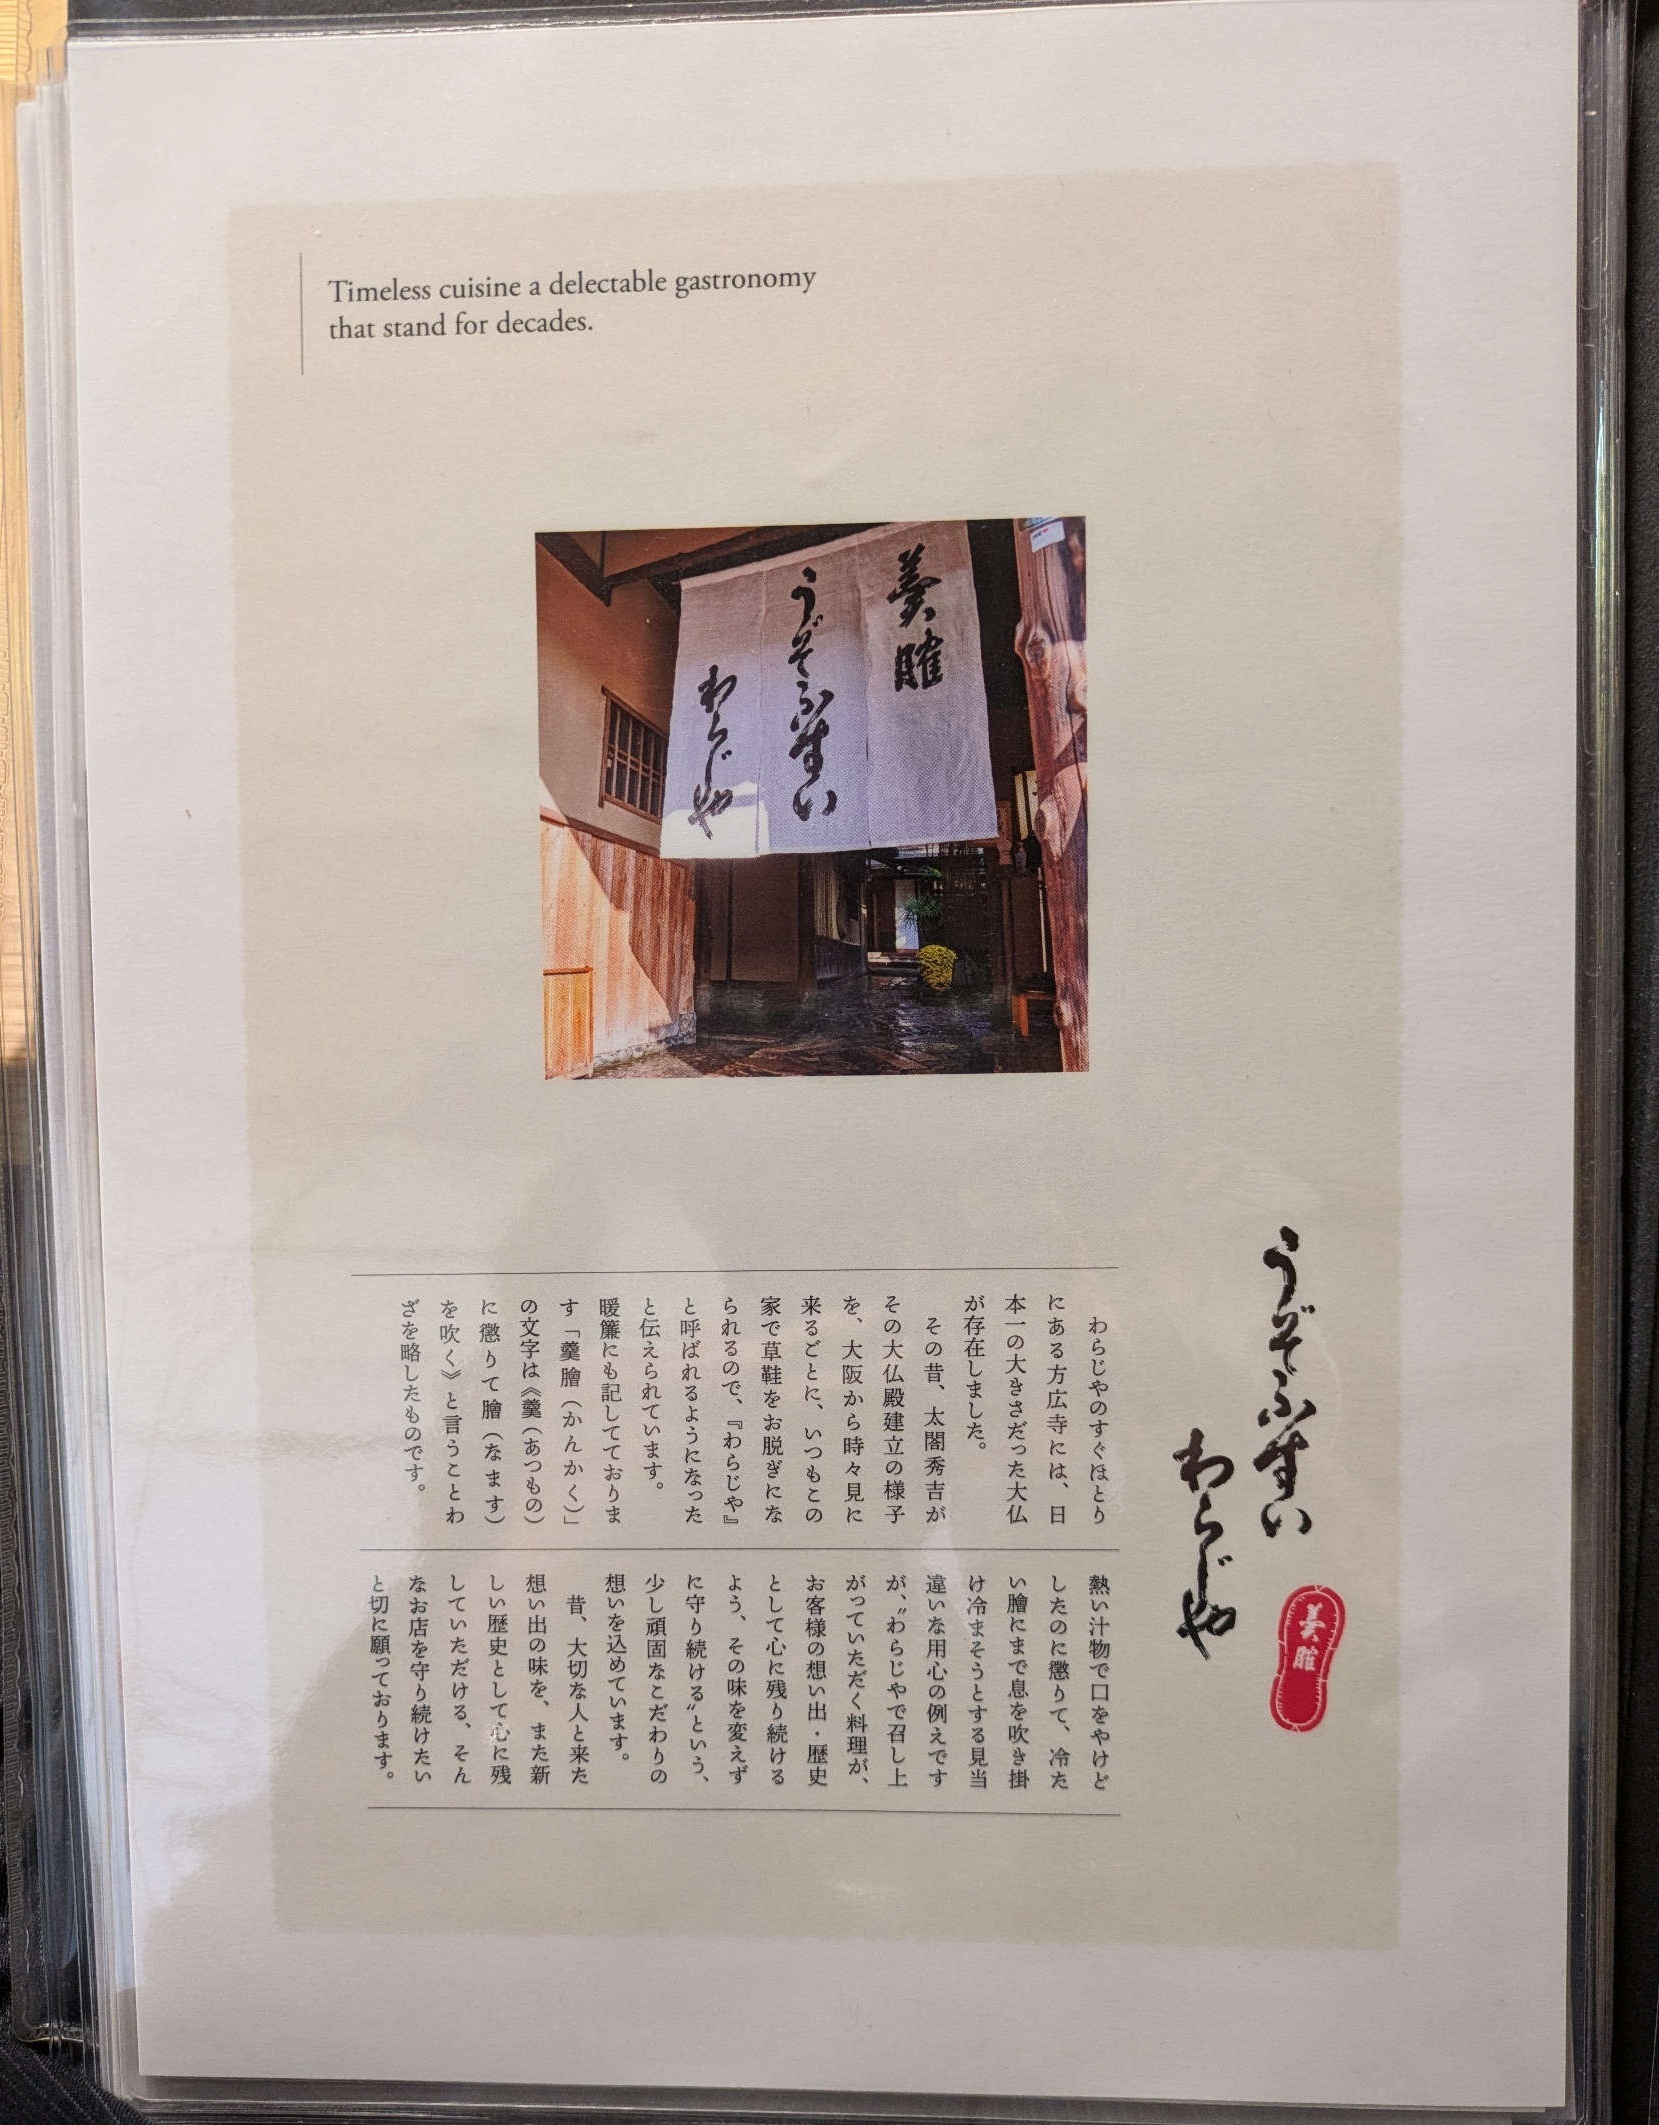 Timeless cuisine a delectable gastronomy
that stand for decades.
羹膾
うぞふすい
わらじや
うぞふすい
わらじや
羹膾
わらじやのすぐほとり
にある方広寺には、日
本一の大きさだった大仏
が存在しました。
その昔、太閤秀吉が
その大仏殿建立の様子
を、大阪から時々見に
来るごとに、いつもこの
家で草鞋をお脱ぎにな
られるので、『わらじや』
と呼ばれるようになった
と伝えられています。
暖簾にも記してておりま
す「羹膾(かんかく)」
の文字は《羹(あつもの)
に懲りて膾(なます)
を吹く》と言うことわ
ざを略したものです。
熱い汁物で口をやけど
したのに懲りて、冷た
い膾にまで息を吹き掛
け冷まそうとする見当
違いな用心の例えです
が、〝わらじやで召し上
がっていただく料理が、
お客様の想い出・歴史
として心に残り続ける
よう、その味を変えず
に守り続ける〟という、
少し頑固なこだわりの
想いを込めています。
昔、大切な人と来た
想い出の味を、また新
しい歴史として心に残
していただける、そん
なお店を守り続けたい
と切に願っております。